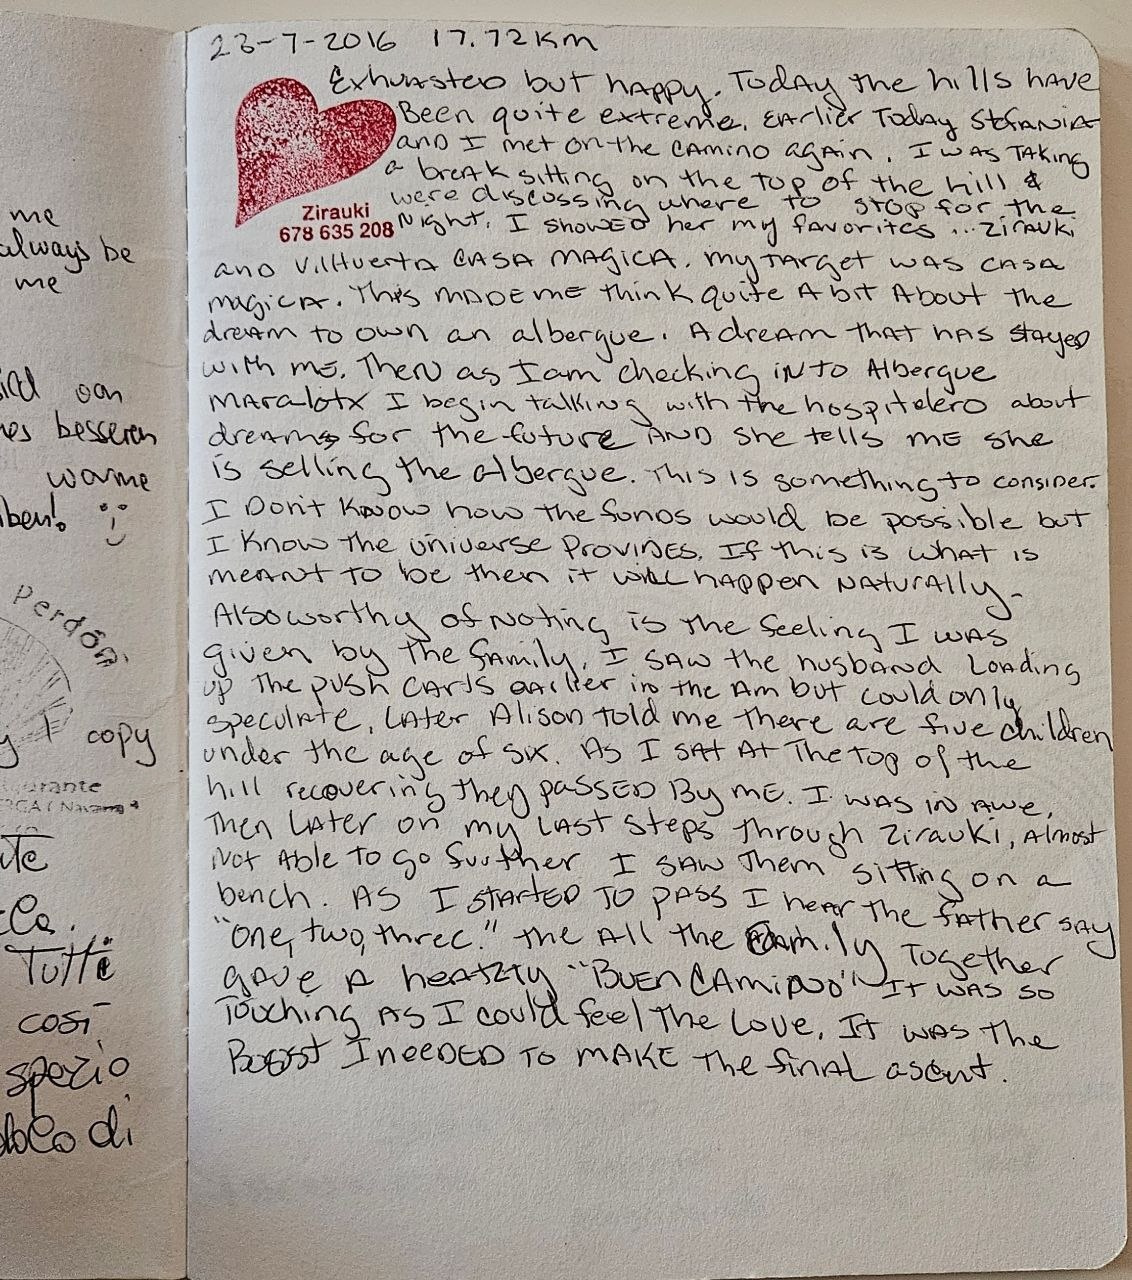 me
always be
me
oan
besseren
warme
Perdón
copy
Tutti
così
spazio
di
23-7-2016 17.72Km
Exhuasted but happy. Today the hills have
Been quite extreme. Earlier Today Stefania
and I met on the camino again. I was taking
a break sitting on the top of the hill &
were discussing where to stop for the
Night. I showed her my favorites ... Zirauki
Zirauki
678 635 208
and Villtuerta Casa Magica. My target was Casa
Magica. This made me think quite a bit about the
dream to own an albergue. A dream that has stayed
with me. Then as I am checking into Albergue
Maralotx I begin talking with the hospitelero about
dreams for the future and she tells me she
is selling the albergue. This is something to consider.
I don't know how the funds would be possible but
I know the universe provides. If this is what is
meant to be then it will happen naturally.
Also worthy of noting is the feeling I was
given by the family. I saw the husband loading
up the push carts earlier in the am but could only
speculate. Later Alison told me there are five children
under the age of six. As I sat at the top of the
hill recovering they passed by me. I was in awe.
Then later on my last steps through Zirauki, almost
not able to go further I saw them sitting on a
bench. As I started to pass I hear the father say
"One, two, three." the all the family together
gave a heartzty "Buen Camino" It was so
Touching as I could feel the love. It was the
Boost I needed to make the final ascent.